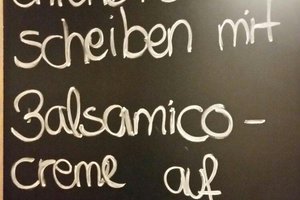 scheiben mit
Balsamico-
creme auf